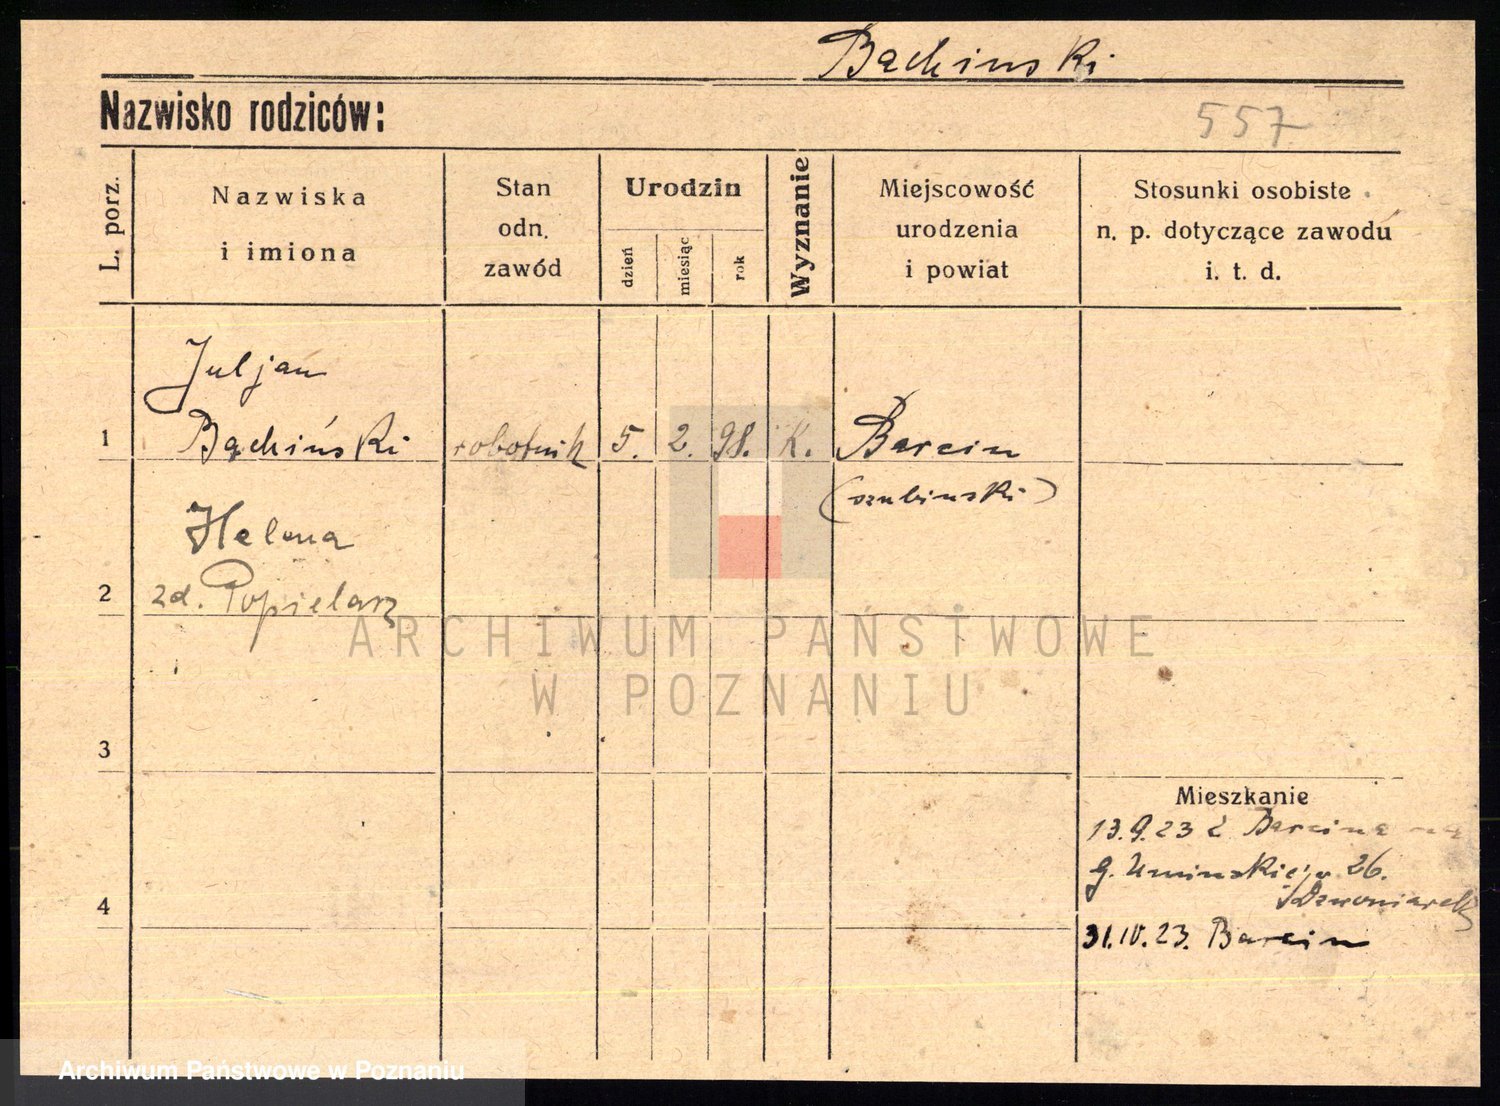 Bąchinski
Nazwisko rodziców:
557
L. porz.
Nazwiska
i imiona
Stan
odn.
zawód
Urodzin
dzień
miesiąc
rok
Wyznanie
Miejscowość
urodzenia
i powiat
Stosunki osobiste
n. p. dotyczące zawodu
i. t. d.
Juljan
1 Bąchiński robotnik 5. 2. 98. K. Barcin
(szubinski)
Helena
2 zd. Popielarz
ARCHIWUM PAŃSTWOWE
W POZNANIU
3
Mieszkanie
13.9.23 z Barcina na
G. Uminskiego 26.
4
31.IV.23. Barcin
Archiwum Państwowe w Poznaniu